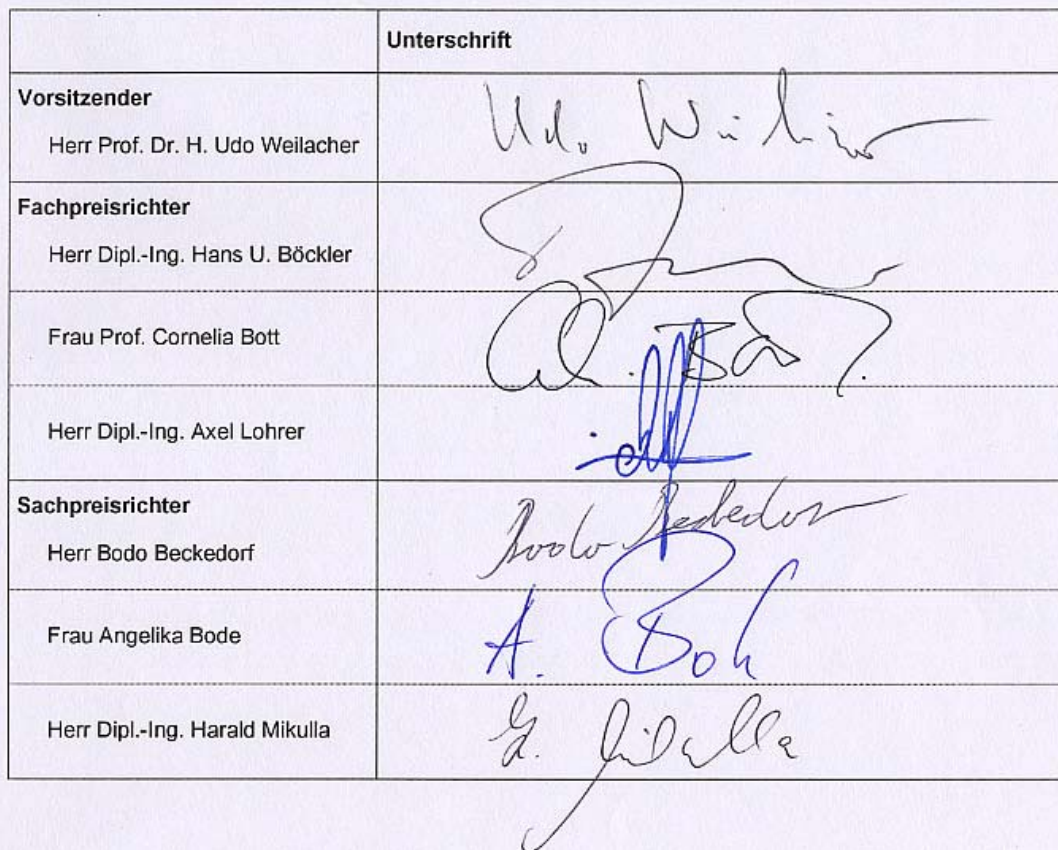 Unterschrift
Vorsitzender
Herr Prof. Dr. H. Udo Weilacher
Udo Weilacher
Fachpreisrichter
Herr Dipl.-Ing. Hans U. Böckler
Frau Prof. Cornelia Bott
Bott
Herr Dipl.-Ing. Axel Lohrer
Sachpreisrichter
Herr Bodo Beckedorf
Bodo Beckedorf
Frau Angelika Bode
A. Bode
Herr Dipl.-Ing. Harald Mikulla
H. Mikulla